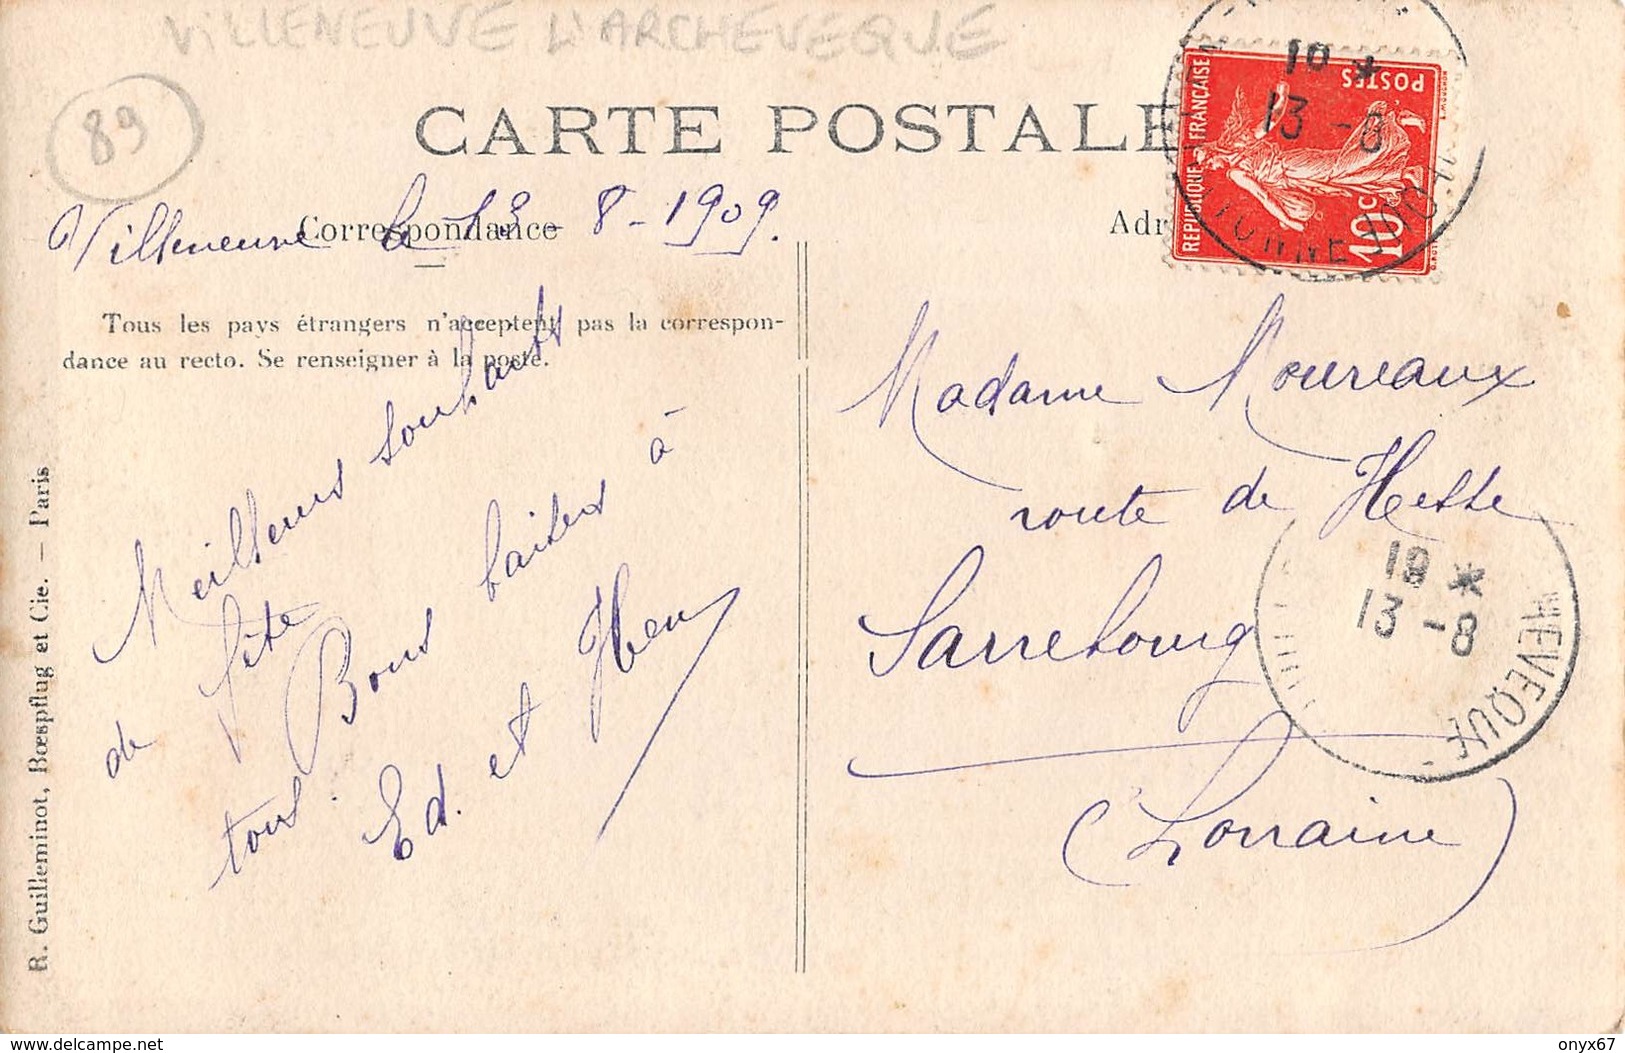 VILLENEUVE L'ARCHEVEQUE
89
CARTE POSTALE
Villeneuve le 13-8-1909.
Correspondance
Tous les pays étrangers n'acceptent pas la correspon-
dance au recto. Se renseigner à la poste.
Meilleurs souhaits
de fête
Bons baisers à
tous.
Ed. et Hen
R. Guilleminot, Bœspflug et Cie. — Paris
Adr
REPUBLIQUE FRANÇAISE
POSTES
10c
YONNE
13 - 8
Madame Moureaux
route de Hesse
Sarrebourg
(Lorraine)
19 *
13 - 8
HEVEQUE
delcampe.net
onyx67